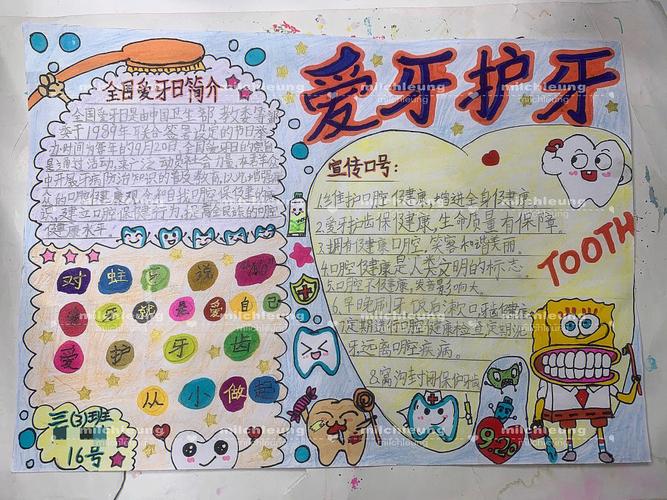 爱牙护牙
全国爱牙日简介
全国爱牙日是由中国卫生部、教委等部
委于1989年联合签署设定的节日,举
办时间为每年的9月20日。全国爱牙日的宗旨
是通过活动,来广泛动员社会力量,在群众
中开展牙病防治知识的普及教育,以此增强
口腔健康水平
宣传口号:
1.维护口腔健康,增进全身健康
2.爱牙护齿保健康,生命质量有保障
3.拥有健康口腔,笑容和谐美丽。
4.口腔健康是人类文明的标志。
5.口腔不健康,
6.早晚刷牙饭后漱口
7.定期进行口腔健康检查
牙远离口腔疾病。
8.窝沟封闭保护牙齿
TOOTH
对蛀牙说“NO”
爱牙就是爱自己
爱护牙齿
从小做起
三(3)班
16号
9.20
milchleung